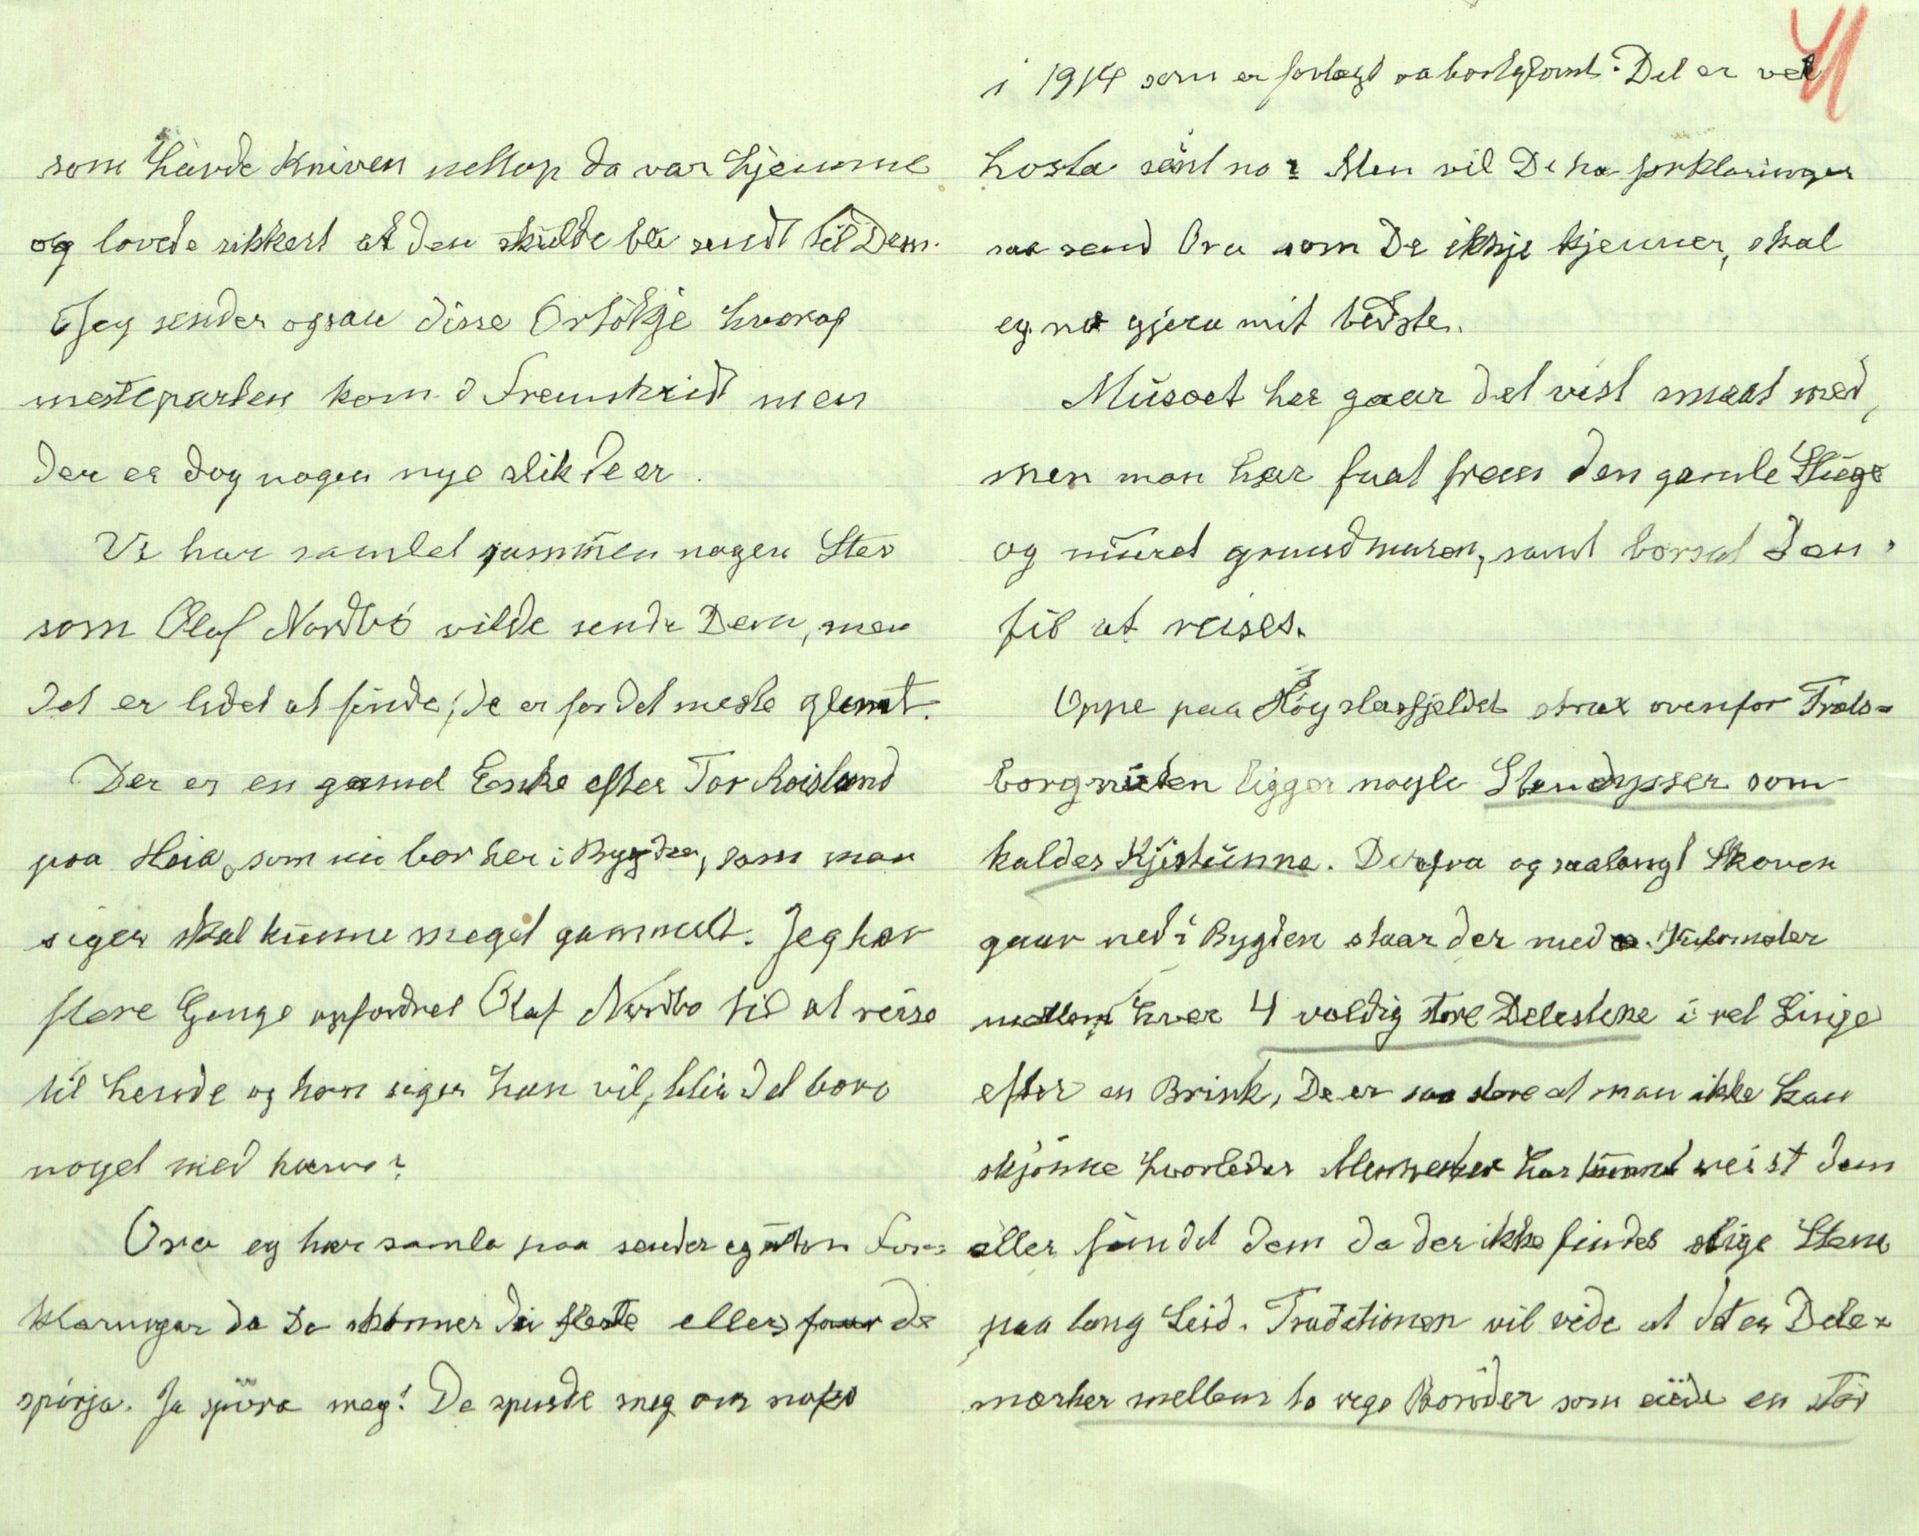 som havde Kniven nettop da var hjemme
og lovede sikkert at den skulde bli sendt til Dem.
Jeg sender ogsaa disse Ortökje hvoraf
mesteparten kom i Fremskridt men
der er dog nogen nye slik de er.
Vi har samlet sammen nogen Stev
som Olaf Nordbö vilde sende Dem, men
det er lidet at finde; de er for det meste glemt.
Der er en gamel Enke efter Tor Roisland
paa Heia, som nu bor her i Bygden, som man
siger skal kunne meget gammelt. Jeg har
flere Gange opfordret Olaf Nordbo til at reise
til hende og han siger han vil, blir det bare
noget med
Ora eg har samla paa sender eg uton For=
klaringar da De skonner dei fleste ellers faar de
spörja. Ja spöra meg! De spurde meg om noko
4
i 1914 som er forlagt aa bortglömt. Det er vel
hosta seint no? Men vil De ha forklaringer
saa send Ora som De ikkje kjenner, skal
eg no gjera mit bedste.
Museet her gaar det vist smaat med,
men man har faat frem den gamle Stuge
og muret grundmuren, samt
til at reises.
Oppe paa Höyslasfjeldet strax ovenfor Træls=
borgnuten ligger nogle Stendysser som
kaldes Kjistunne. Derfra og saalangt Skoven
gaar ned i Bygden staar der med Kilometer
mellem hver 4 voldig store Delestene i ret Linje
efter en Brink, De er saa store at man ikke kan
skjönne hvorledes Mennesker har kunnet reist dem
eller fundet dem da der ikke findes slige Stene
paa lang Leid. Traditionen vil vide at det er Dele=
mærker mellem to rege Bönder som eiede en stor